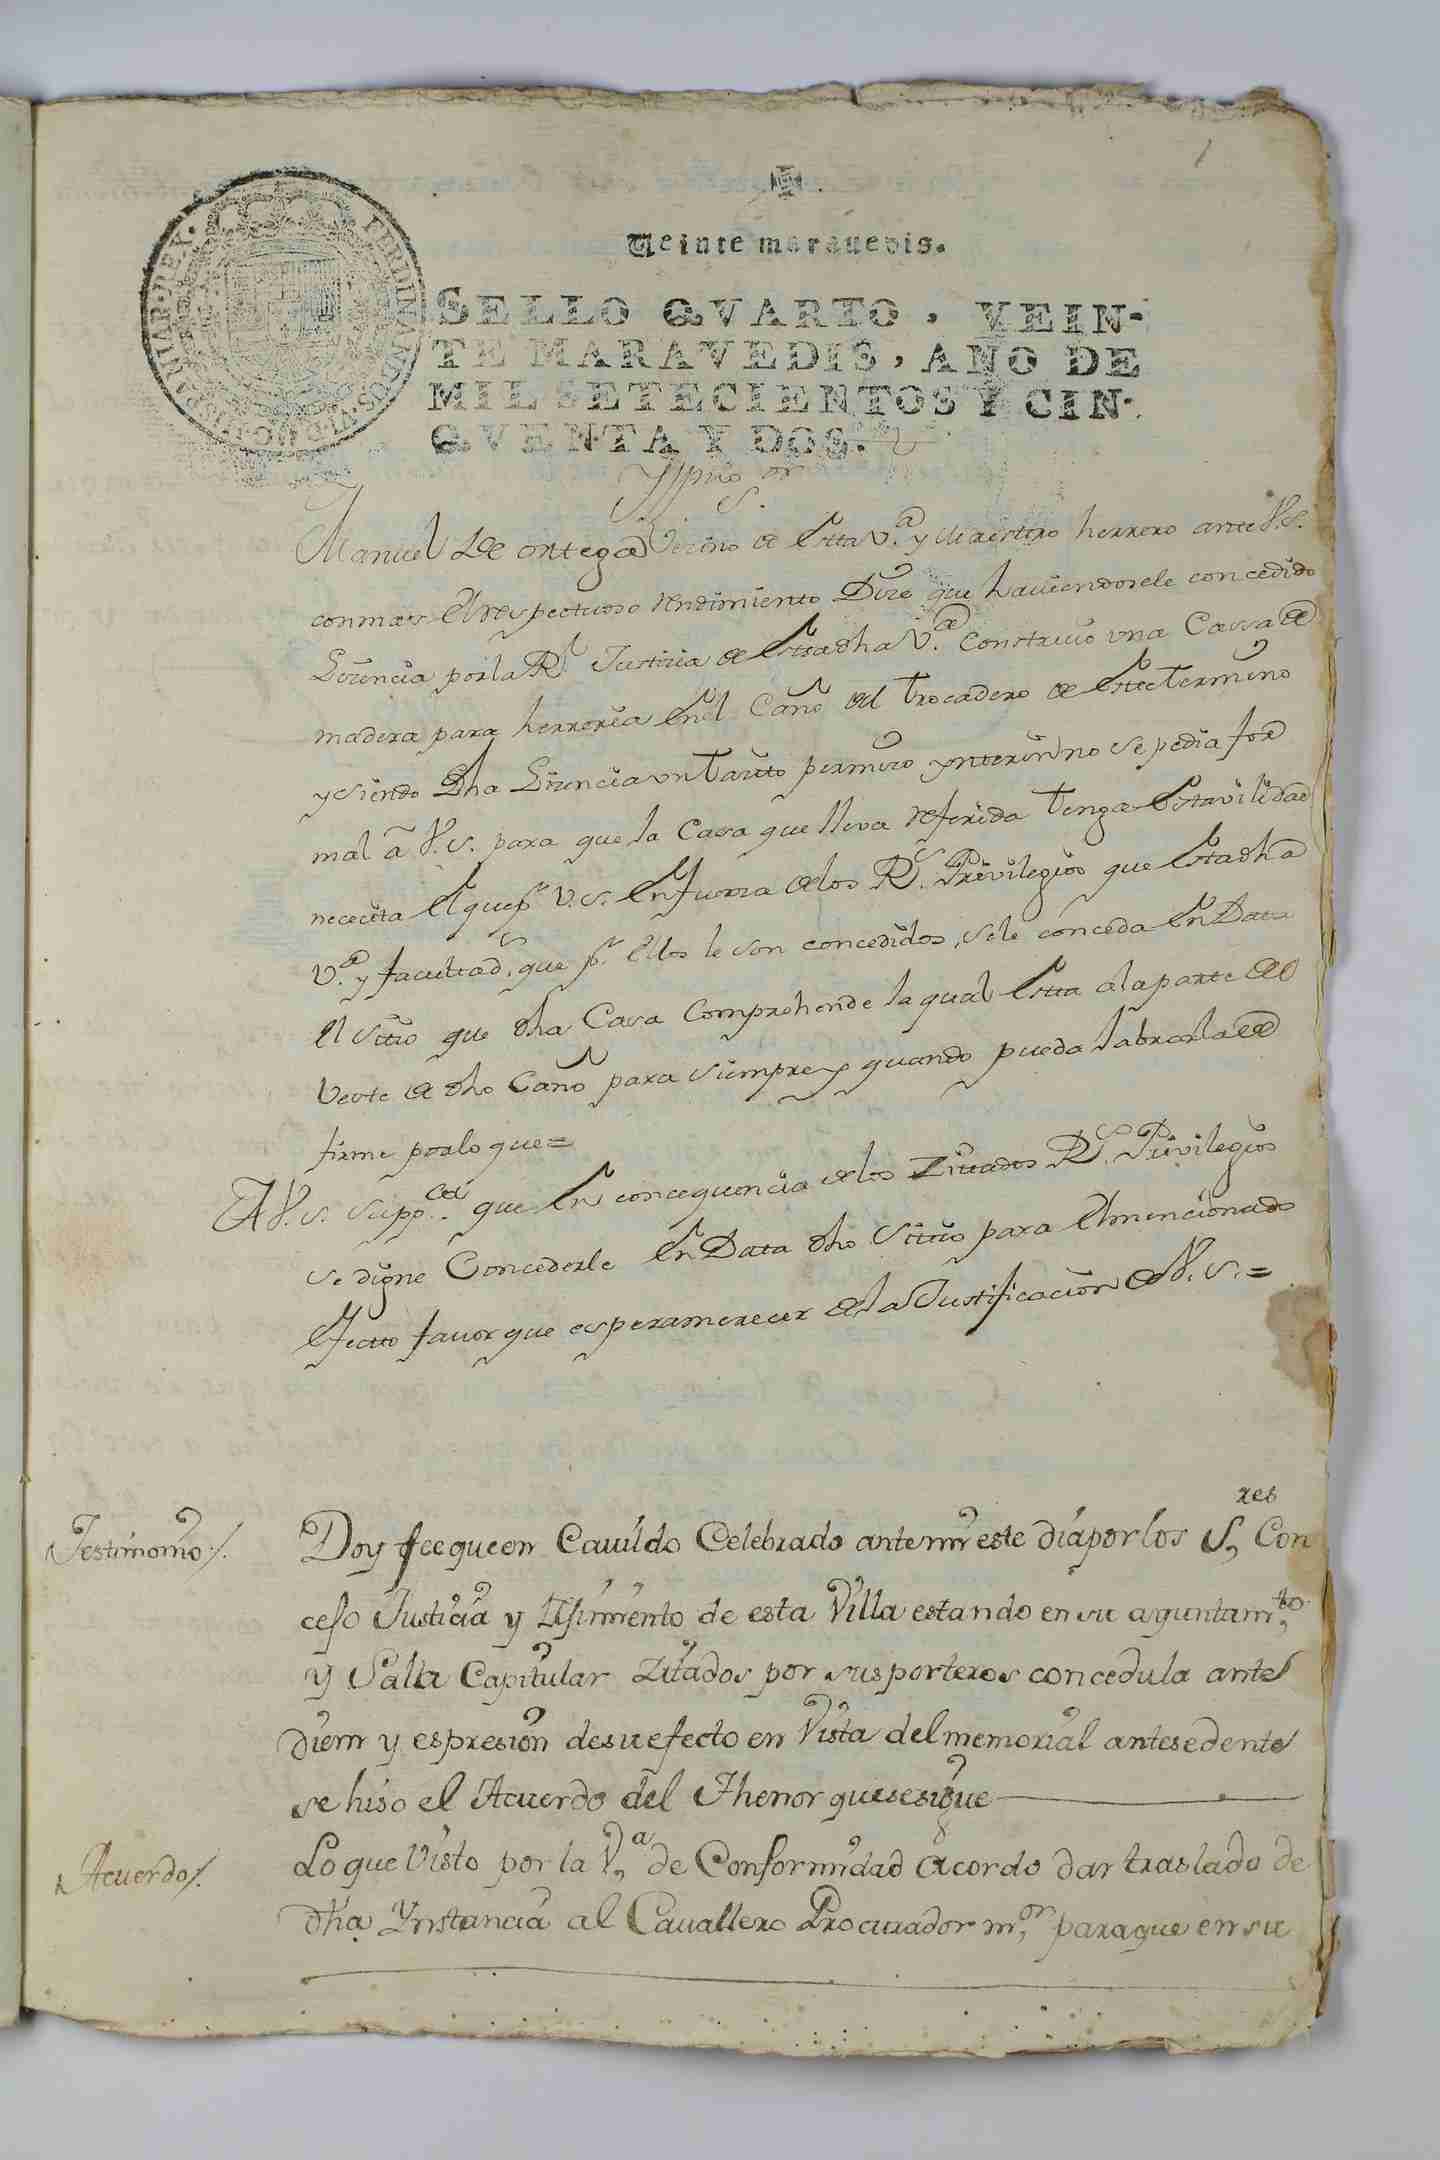 1
Veinte maravedis.
SELLO QVARTO, VEIN-
TE MARAVEDIS, AÑO DE
MIL SETECIENTOS Y CIN-
QVENTA Y DOS.
FERDINANDUS VI D G HISPANIAR REX
Manuel De ortega Vecino de Esta V.ª y Maestro herrero ante V.S.
con mas El respectuoso rendimiento Dice que haviendosele concedido
Licencia por la R.l Justicia de Estadha V.ª Construio una Cassa de
madera para herreria En el Caño del trocadero de Este termino
y siendo Dha Licencia un tanto permiso ynterin no se pedia for
mal â V.S. para que la Casa que lleva referida tenga Estavilidad
nececita El que V.S. En fuerza de los R.s Privilegios que Estadha
V.ª y facultad.s que p.r Ellos le son concedidos, sele conceda En Data
El sitio que dha Casa Comprehende la qual Esta ala parte del
veste de dho Caño para siempre y quando pueda labrarla de
firme porlo que=
A V.S. supp.ca que En concequencia de los Zitados R.s Privilegios
se digne Concederle En Data dho Sitio para El mencionado
Efecto favor que espera merecer de la Justificacion de V.S.=
Testimonio/.
Doy fee que en Cauildo Celebrado ante mi este dia por los S,res Con
cejo Justicia y Rejimiento de esta Villa estando en su ayuntam,to
y Salla Capitular Zitados por sus porteros con cedula ante
diem y espresion de su efecto en Vista del memorial antesedente
se hiso el Acuerdo del Thenor que se sigue
Acuerdo/.
Lo que Visto por la V,ª de Conformidad acordo dar traslado de
dha Ynstancia al Cauallero Procurador m,or para que en su